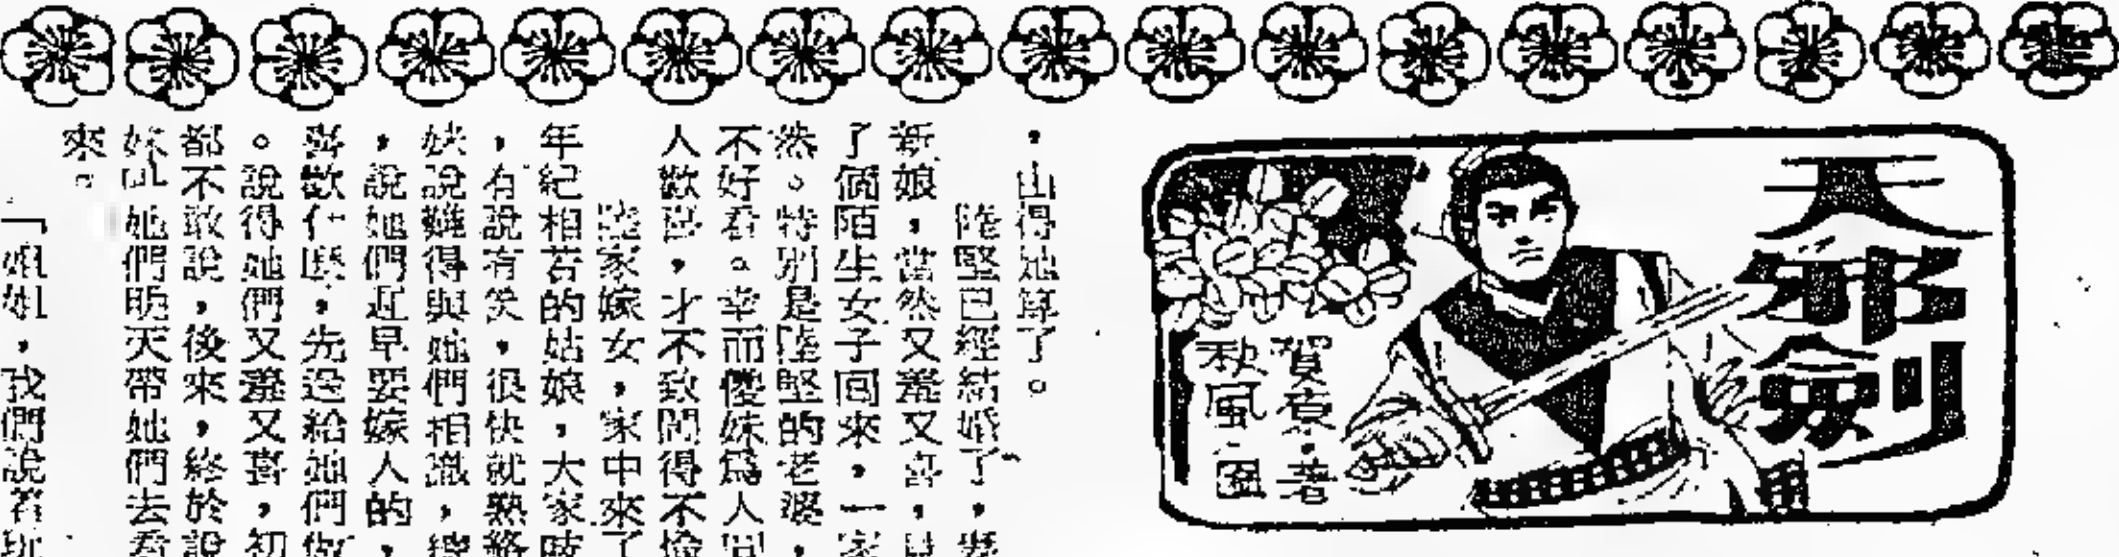 天邪劍
賀京·著
秋風·圖
，由得她算了。
陸堅已經結婚了，
新娘，當然又羞又喜，
了個陌生女子回來，一家
然。特別是陸堅的老婆，
不好看。幸而傻妹為人
人歡喜，才不致鬧得不愉
陸家嫁女，家中來了
年紀相若的姑娘，大家
，有說有笑，很快就熟絡
妹說難得與她們相識，
，說她們遲早要嫁人的，
喜歡什麼，先送給她們做
。說得她們又羞又喜，初
都不敢說，後來，終於說
妹叫她們明天帶她們去看
來。
「姐姐，我們說着玩